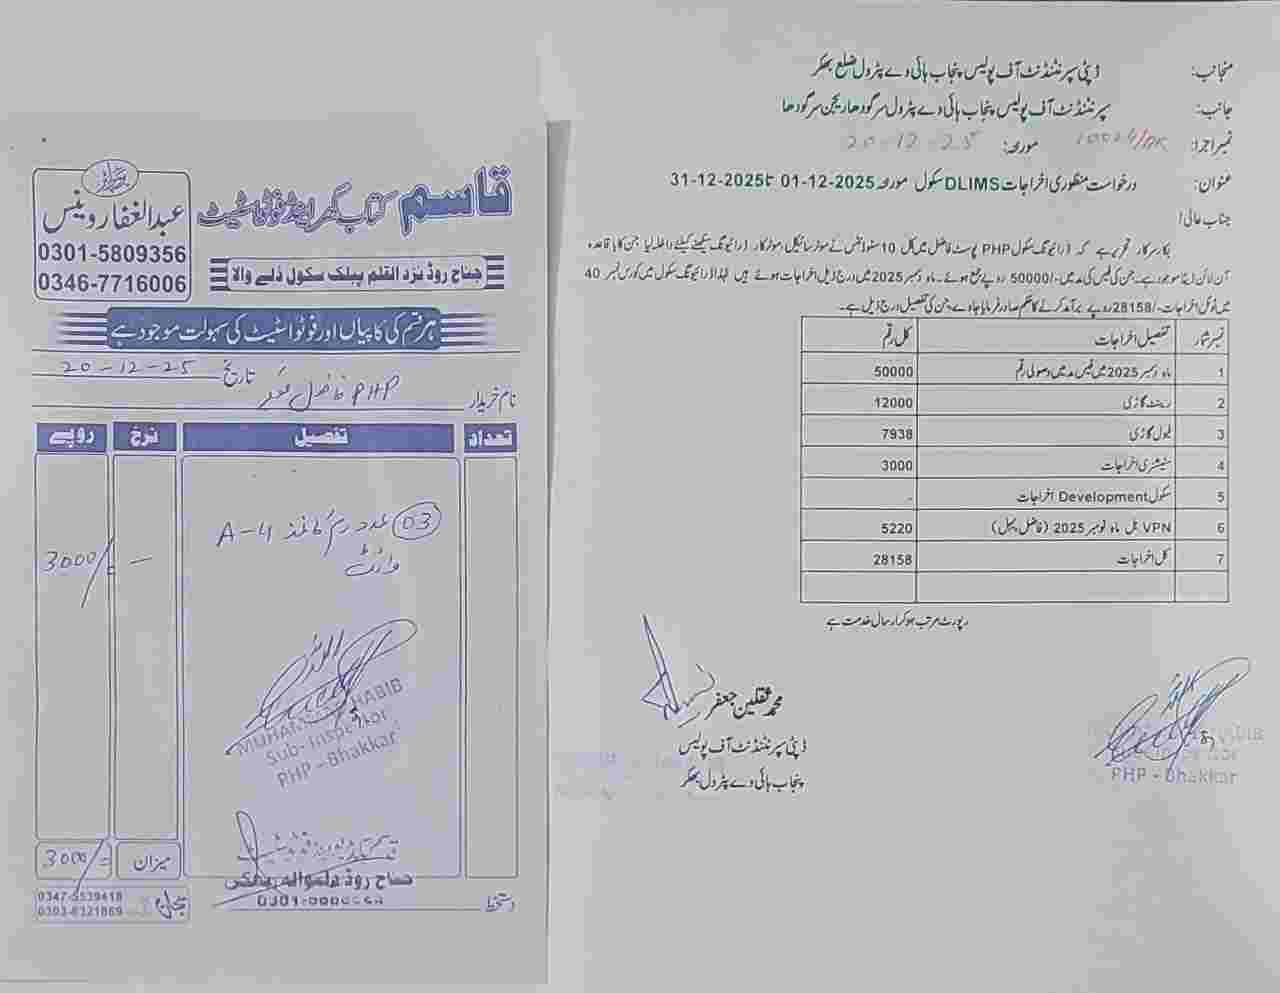 عبدالغفار وینس
0301-5809356
0346-7716006
قاسم کتاب گھر اینڈ فوٹو سٹیٹ
جناح روڈ نزد القلم پبلک سکول ڈلے والا
ہر قسم کی کاپیاں اور فوٹو اسٹیٹ کی سہولت موجود ہے
تاریخ 20-12-25
نام خریدار PHP فاضل
تعداد تفصیل نرخ روپے
03 عدد رم کاغذ A-4
وائٹ
— 3000/=
MUHAMMAD HABIB
Sub-Inspector
PHP - Bhakkar
میزان 3000/=
جناح روڈ
دستخط
0347-5539418
0303-6321869
منجانب: ڈپٹی سپرنٹنڈنٹ آف پولیس پنجاب ہائی وے پٹرول ضلع بھکر
جانب: سپرنٹنڈنٹ آف پولیس پنجاب ہائی وے پٹرول سرگودھا ریجن سرگودھا
نمبر اجرا: مورخہ: 20-12-25
عنوان: درخواست منظوری اخراجات DLIMS سکول مورخہ 01-12-2025 تا 31-12-2025
جناب عالی!
بکار سرکار تحریر ہے کہ ڈرائیونگ سکول PHP پوسٹ فاضل میں کل 10 سٹوڈنٹس نے موٹر سائیکل موٹر کار ڈرائیونگ سیکھنے کیلئے داخلہ لیا جن کا باقاعدہ
آن لائن ڈیٹا موجود ہے۔ جن کی فیس کی مد میں -/50000 روپے جمع ہوئے۔ ماہ دسمبر 2025 میں درج ذیل اخراجات ہوئے ہیں لہذا ڈرائیونگ سکول میں کورس نمبر 40
میں ٹوٹل اخراجات -/28158 روپے برآمد کرنے کا حکم صادر فرمایا جاوے۔ جن کی تفصیل درج ذیل ہے۔
نمبر شمار تفصیل اخراجات کل رقم
1 ماہ دسمبر 2025 میں فیس مد میں وصولی رقم 50000
2 رینٹ گاڑی 12000
3 فیول گاڑی 7938
4 سٹیشنری اخراجات 3000
5 سکول Development اخراجات -
6 VPN بل ماہ نومبر 2025 (فاضل پیپل) 5220
7 کل اخراجات 28158
رپورٹ مرتب ہو کر ارسال خدمت ہے
محمد ثقلین جعفر
ڈپٹی سپرنٹنڈنٹ آف پولیس
پنجاب ہائی وے پٹرول بھکر
PHP - Bhakkar